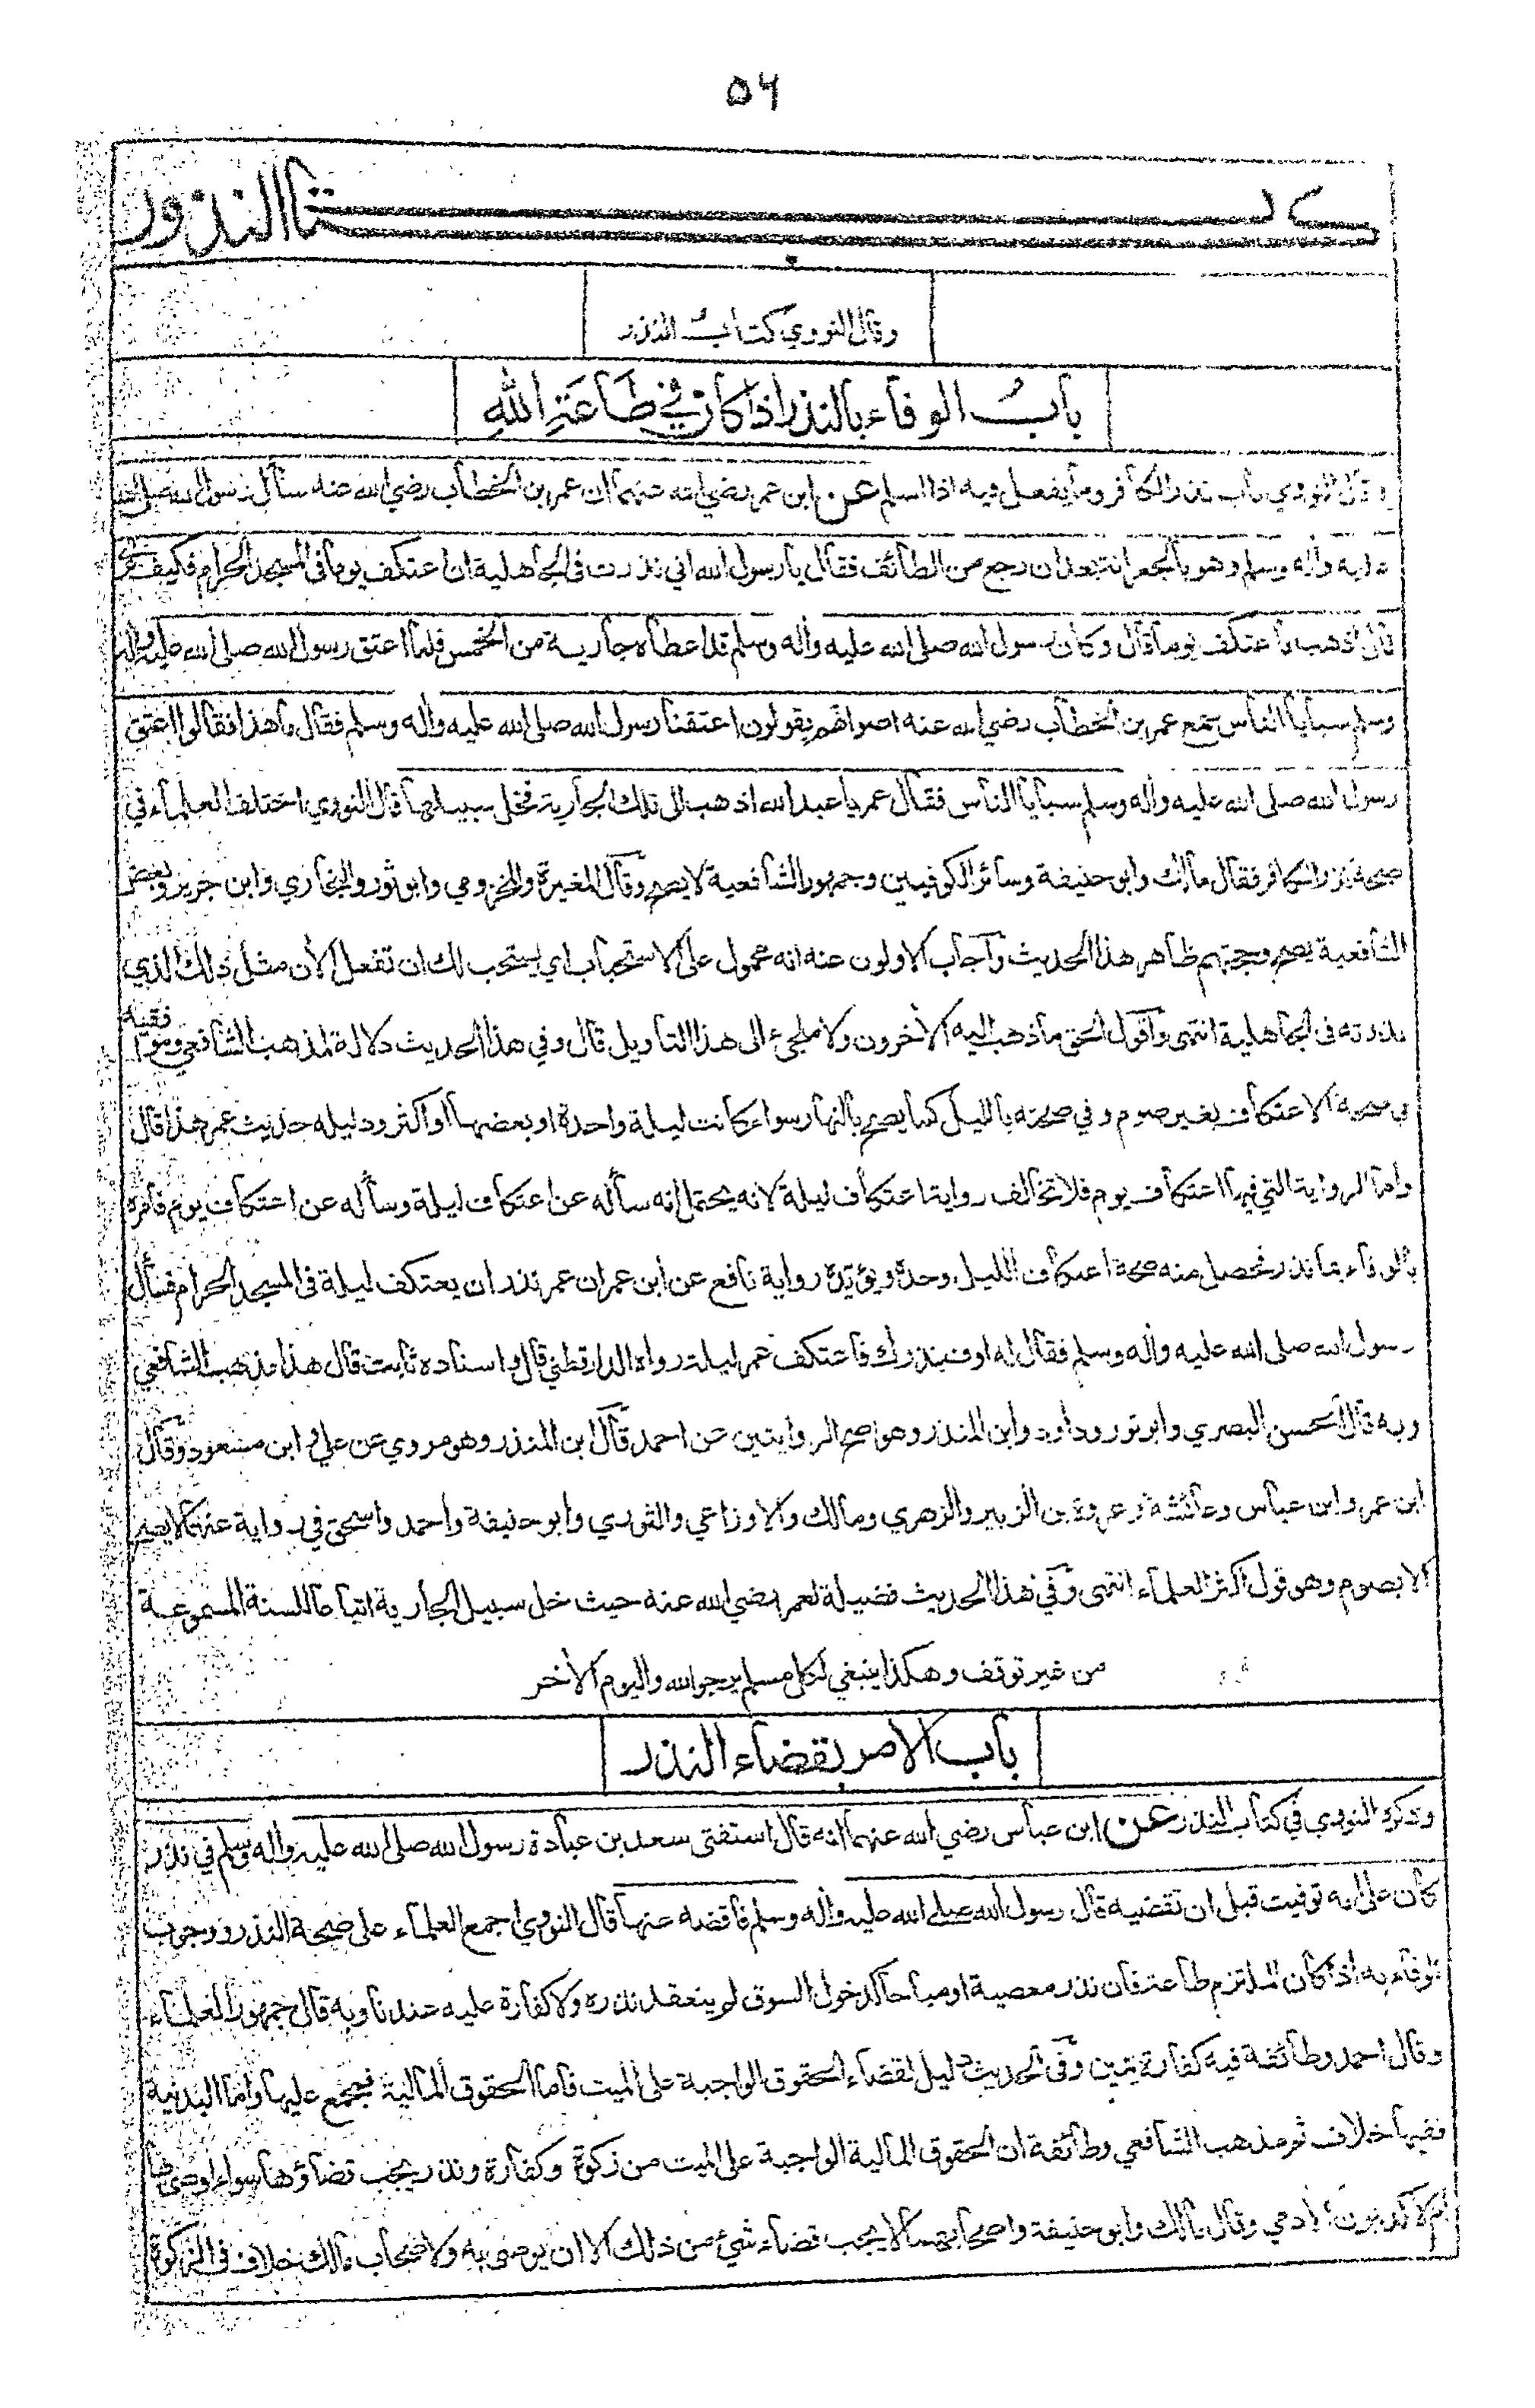 ٥٦
كتاب النذور
وقال النووي كتاب النذر
باب الوفاء بالنذر اذا كان في طاعة الله
وقال النووي باب نذر الكافر وما يفعل فيه اذا اسلم عن ابن عمر رضي الله عنهما ان عمر بن الخطاب رضي الله عنه سأل رسول الله صلى الله
عليه وأله وسلم وهو بالجعرانة بعد ان رجع من الطائف فقال يا رسول الله اني نذرت في الجاهلية ان اعتكف يوما في المسجد الحرام فكيف ترى
قال اذهب فاعتكف يوما قال وكان رسول الله صلى الله عليه وأله وسلم قد اعطاه جارية من الخمس فلما اعتق رسول الله صلى الله عليه وأله
وسلم سبايا الناس سمع عمر بن الخطاب رضي الله عنه اصواتهم يقولون اعتقنا رسول الله صلى الله عليه وأله وسلم فقال ما هذا فقالوا اعتق
رسول الله صلى الله عليه وأله وسلم سبايا الناس فقال عمر يا عبد الله اذهب الى تلك الجارية فخل سبيلها قال النووي اختلف العلماء في
صحة نذر الكافر فقال مالك وابو حنيفة وسائر الكوفيين وجمهور الشافعية لا يصح وقال المغيرة والمخزومي وابو ثور والبخاري وابن جرير وبعض
الشافعية يصح وحجتهم ظاهر هذا الحديث وأجاب الاولون عنه انه محمول على الاستحباب اي يستحب لك ان تفعل الأن مثل ذلك الذي
نذرته في الجاهلية انتهى وأقول الحق ما ذهب اليه الأخرون ولا ملجئ الى هذا التأويل قال وفي هذا الحديث دلالة لمذهب الشافعي وموافقيه
في صحة الاعتكاف بغير صوم وفي صحته بالليل كما يصح بالنهار سواء كانت ليلة واحدة او بعضها او اكثر ودليله حديث عمر هذا قال
واما الرواية التي فيها اعتكاف يوم فلا تخالف رواية اعتكاف ليلة لانه يحتمل انه سأله عن اعتكاف ليلة وسأله عن اعتكاف يوم فأمره
بالوفاء بما نذر فحصل منه صحة اعتكاف الليل وحده ويؤيده رواية نافع عن ابن عمر ان عمر نذر ان يعتكف ليلة في المسجد الحرام فسأل
رسول الله صلى الله عليه وأله وسلم فقال له اوف بنذرك فاعتكف عمر ليلة رواه الدارقطني قال واسناده ثابت قال هذا مذهب الشافعي
وبه قال الحسن البصري وابو ثور وداود وابن المنذر وهو اصح الروايتين عن احمد قال ابن المنذر وهو مروي عن علي وابن مسعود وقال
ابن عمر وابن عباس وعائشة وعروة بن الزبير والزهري ومالك والاوزاعي والثوري وابو حنيفة واحمد واسحق في رواية عنهما لا يصح
الا بصوم وهو قول اكثر العلماء انتهى وفي هذا الحديث فضيلة لعمر رضي الله عنه حيث خل سبيل الجارية اتباعا للسنة المسموعة
من غير توقف وهكذا ينبغي لكل مسلم يرجو الله واليوم الأخر
باب الامر بقضاء النذر
وذكره النووي في كتاب النذر عن ابن عباس رضي الله عنهما انه قال استفتى سعد بن عبادة رسول الله صلى الله عليه وأله وسلم في نذر
كان على امه توفيت قبل ان تقضيه قال رسول الله صلى الله عليه وأله وسلم فاقضه عنها قال النووي اجمع العلماء على صحة النذر ووجوب
الوفاء به اذا كان الملتزم طاعة فان نذر معصية او مباحا كدخول السوق لم ينعقد نذره ولا كفارة عليه عندنا وبه قال جمهور العلماء
وقال احمد وطائفة فيه كفارة يمين وفي الحديث دليل لقضاء الحقوق الواجبة على الميت فاما الحقوق المالية فمجمع عليها واما البدنية
ففيها خلاف ثم مذهب الشافعي وطائفة ان الحقوق المالية الواجبة على الميت من زكوة وكفارة ونذر يجب قضاؤها سواء اوصى بها
ام لا كديون الأدمي وقال مالك وابو حنيفة واصحابهما لا يجب قضاء شيء من ذلك الا ان يوصي به ولاصحاب مالك خلاف في الزكوة